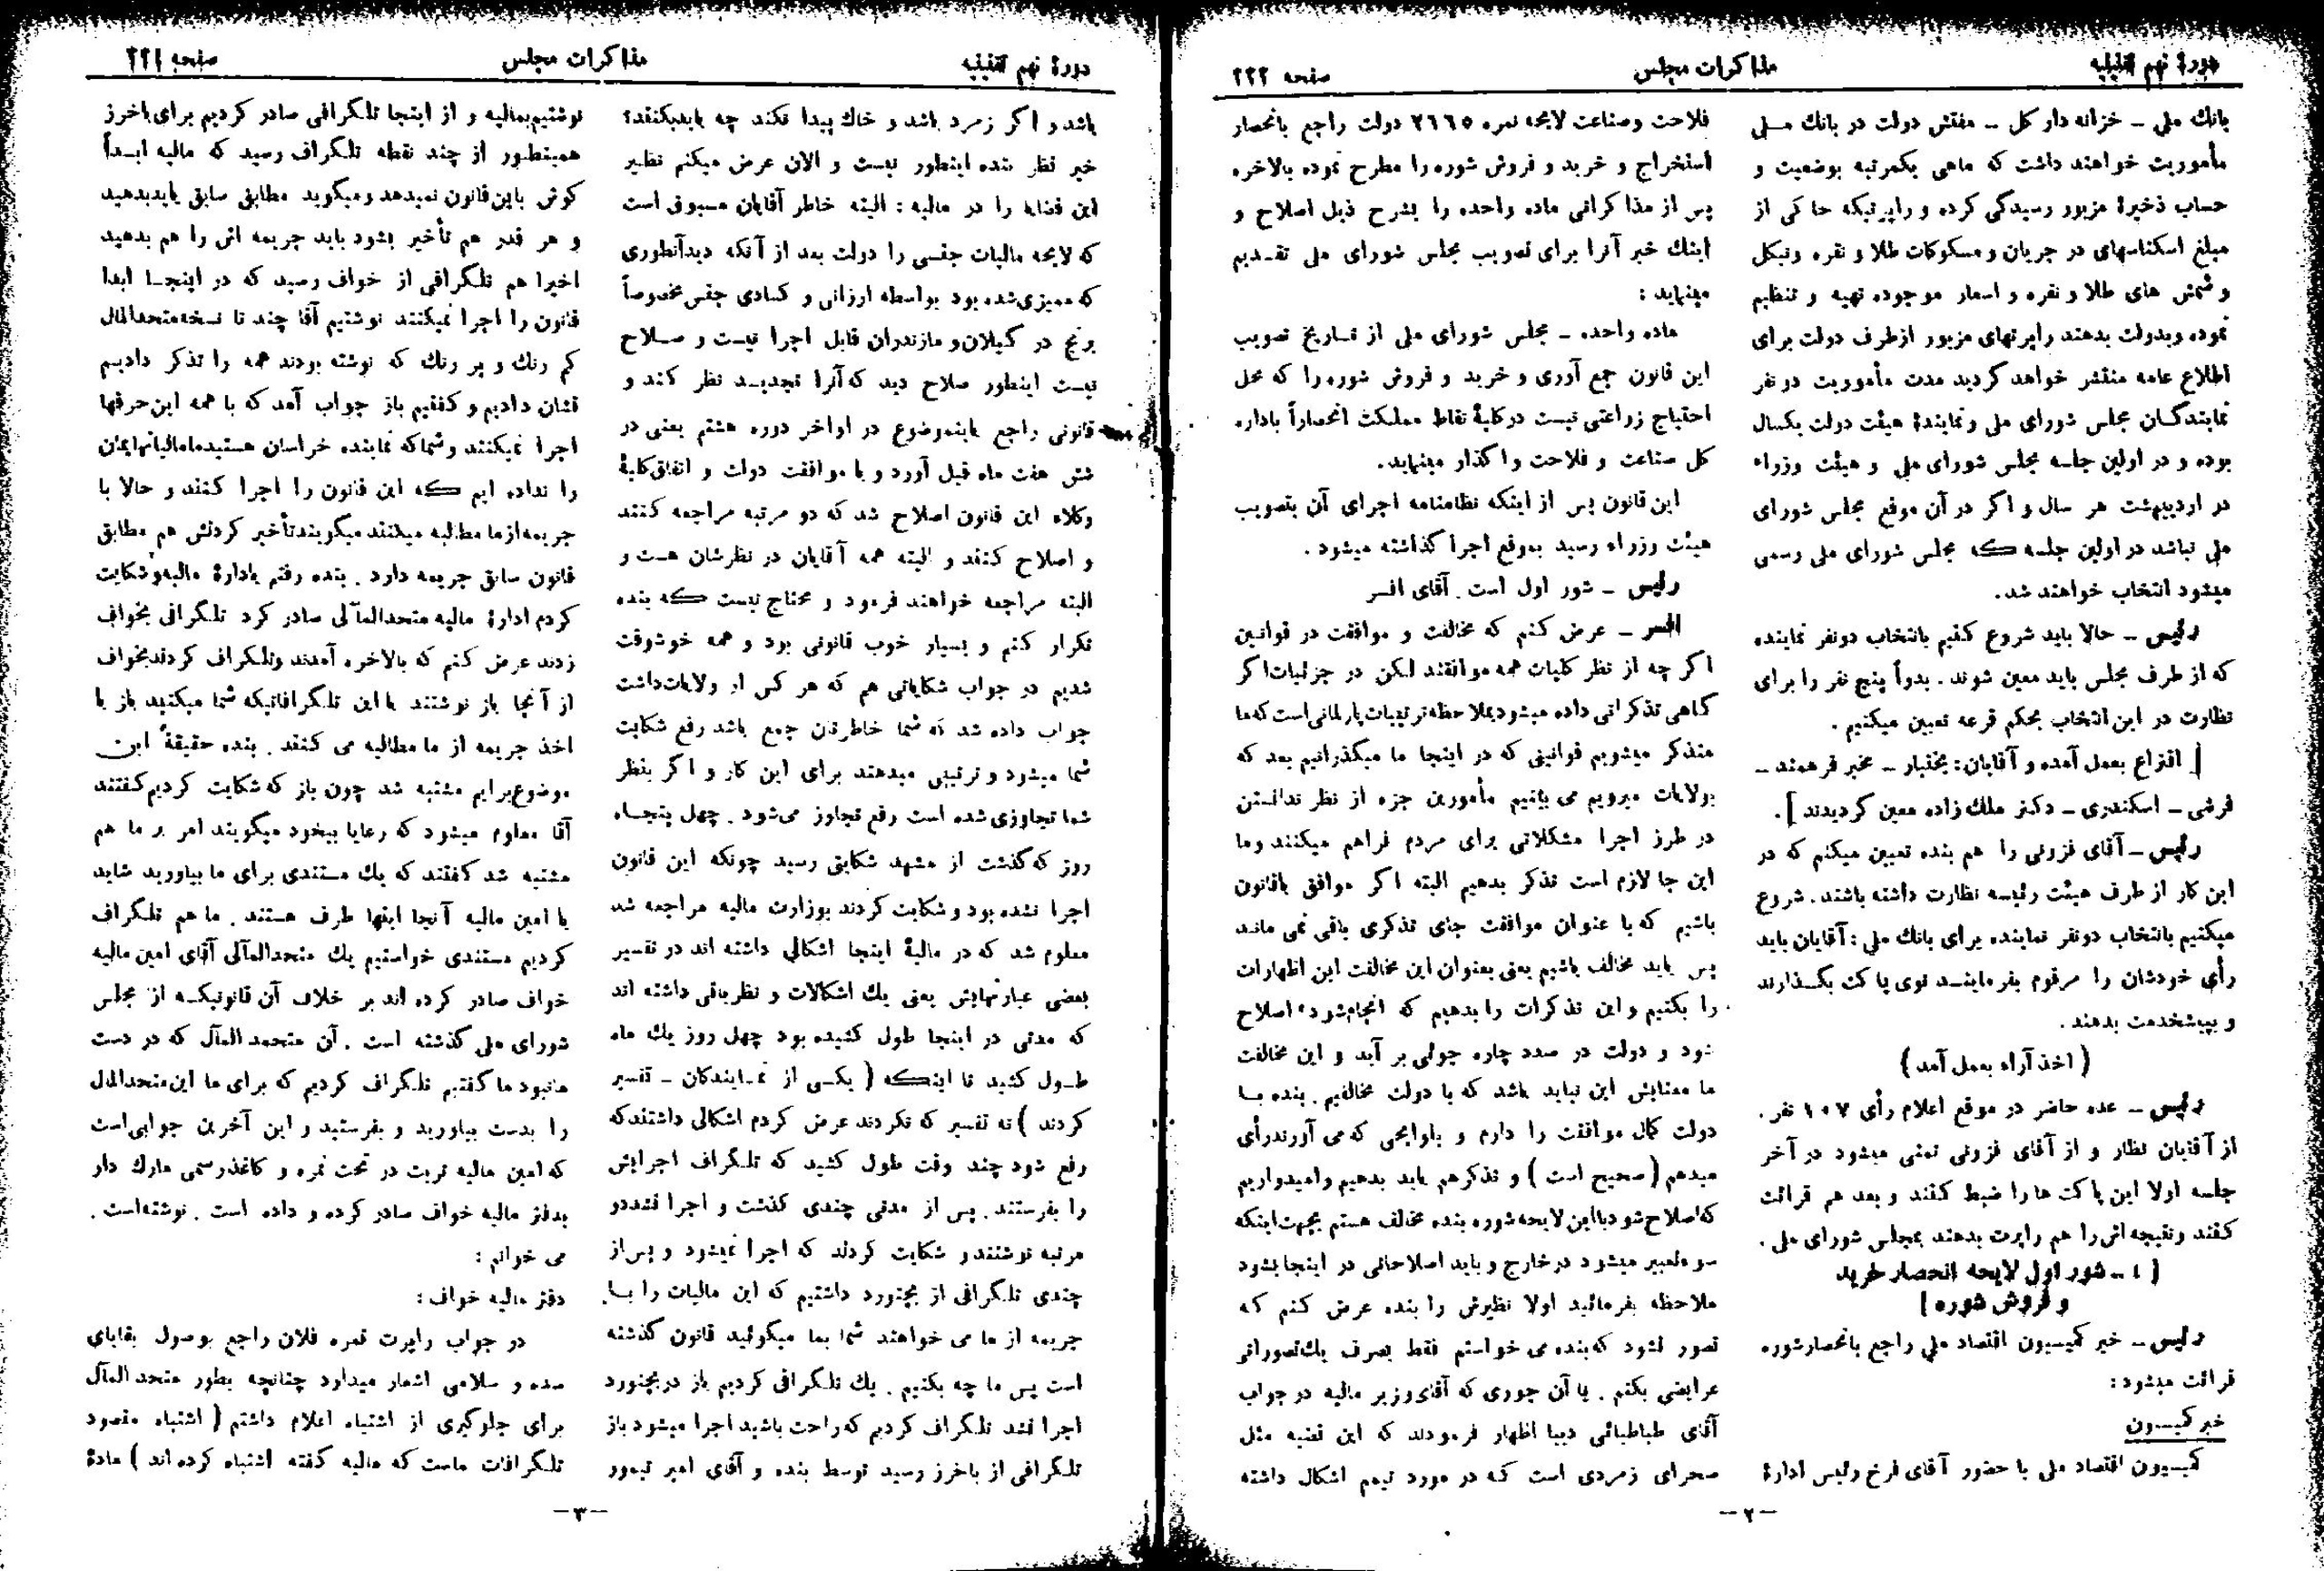 دورهٔ نهم تقنینیه
مذاکرات مجلس
صفحه ۲۲۲
بانك ملی ـ خزانه دار کل ـ مفتش دولت در بانك ملی
مأموریت خواهند داشت که ماهی یکمرتبه بوضعیت و
حساب ذخیرهٔ مزبور رسیدگی کرده و راپرتیکه حاکی از
مبلغ اسکناسهای در جریان و مسکوکات طلا و نقره و نیکل
و شمش های طلا و نقره و اسعار موجوده تهیه و تنظیم
نموده و بدولت بدهند راپرتهای مزبور از طرف دولت برای
اطلاع عامه منتشر خواهد گردید مدت مأموریت دو نفر
نمایندگان مجلس شورای ملی و نمایندهٔ هیئت دولت یکسال
بوده و در اولین جلسه مجلس شورای ملی و هیئت وزراء
در اردیبهشت هر سال و اگر در آن موقع مجلس شورای
ملی نباشد در اولین جلسه که مجلس شورای ملی رسمی
میشود انتخاب خواهند شد.
رئیس ـ حالا باید شروع کنیم بانتخاب دونفر نماینده
که از طرف مجلس باید معین شوند. بدواً پنج نفر را برای
نظارت در این انتخاب بحکم قرعه تعیین میکنیم.
[ اقتراع بعمل آمده و آقایان: بختیار ـ مخبر فرهمند ـ
قرشی ـ اسکندری ـ دکتر ملك زاده معین گردیدند ].
رئیس ـ آقای قزونی را هم بنده تعیین میکنم که در
این کار از طرف هیئت رئیسه نظارت داشته باشند. شروع
میکنیم بانتخاب دونفر نماینده برای بانك ملی: آقایان باید
رأی خودشان را مرقوم بفرمایند توی پاکت بگذارند
و بپیشخدمت بدهند.
( اخذ آراء بعمل آمد )
رئیس ـ عده حاضر در موقع اعلام رأی ۱۰۷ نفر.
از آقایان نظار و از آقای قزونی تمنی میشود در آخر
جلسه اولا این پاکت ها را ضبط کنند و بعد هم قرائت
کنند و نتیجه اش را هم راپرت بدهند بمجلس شورای ملی.
[ ٤ ـ شور اول لایحه انحصار خرید
و فروش شوره ]
رئیس ـ خبر کمیسیون اقتصاد ملی راجع بانحصار شوره
قرائت میشود:
خبر کمیسیون
کمیسیون اقتصاد ملی با حضور آقای فرخ رئیس ادارهٔ
فلاحت و صناعت لایحه نمره ۲۶۶۵ دولت راجع بانحصار
استخراج و خرید و فروش شوره را مطرح نموده بالاخره
پس از مذاکراتی ماده واحده را بشرح ذیل اصلاح و
اینك خبر آنرا برای تصویب مجلس شورای ملی تقدیم
مینماید:
ماده واحده ـ مجلس شورای ملی از تاریخ تصویب
این قانون جمع آوری و خرید و فروش شوره را که محل
احتیاج زراعتی نیست در کلیهٔ نقاط مملکت انحصاراً باداره
کل صناعت و فلاحت واگذار مینماید.
این قانون پس از اینکه نظامنامه اجرای آن بتصویب
هیئت وزراء رسید بموقع اجرا گذاشته میشود.
رئیس ـ شور اول است. آقای افسر
افسر ـ عرض کنم که مخالفت و موافقت در قوانین
اگر چه از نظر کلیات همه موافقند لکن در جزئیات اگر
گاهی تذکراتی داده میشود بملاحظه ترتیبات پارلمانی است که ما
متذکر میشویم قوانینی که در اینجا ما میگذرانیم بعد که
بولایات میرویم می بینیم مأمورین جزء از نظر ندانستن
در طرز اجرا مشکلاتی برای مردم فراهم میکنند و ما
این جا لازم است تذکر بدهیم البته اگر موافق باقانون
باشیم که با عنوان موافقت جای تذکری باقی نمی ماند
پس باید مخالف باشیم یعنی بعنوان این مخالفت این اظهارات
را بکنیم و این تذکرات را بدهیم که انجام شود، اصلاح
شود و دولت در صدد چاره جوئی بر آید و این مخالفت
ما معنایش این نباید باشد که با دولت مخالفیم. بنده با
دولت کمال موافقت را دارم و بلوایحی که می آورند رأی
میدهم ( صحیح است ) و تذکر هم باید بدهیم و امیدواریم
که اصلاح شود با این لایحه شوره بنده مخالف هستم بجهت اینکه
سوء تعبیر میشود در خارج و باید اصلاحاتی در اینجا بشود
ملاحظه بفرمائید اولا نظیرش را بنده عرض کنم که
تصور نشود که بنده می خواستم فقط بصرف یك تصوراتی
عرایضی بکنم. یا آن جوری که آقای وزیر مالیه در جواب
آقای طباطبائی دیبا اظهار فرمودند که این قضیه مثل
صحرای زمردی است که در مورد تیمم اشکال داشته
ـ ۲ ـ
دورهٔ نهم تقنینیه
مذاکرات مجلس
صفحه ۲۲۱
باشد و اگر زمرد باشد و خاك پیدا نکند چه باید بکنند؟
خیر نظر بنده اینطور نیست و الان عرض میکنم نظیر
این قضایا را در مالیه: البته خاطر آقایان مسبوق است
که لایحه مالیات جنسی را دولت بعد از آنکه دید آنطوری
که ممیزی شده بود بواسطه ارزانی و کسادی جنس مخصوصاً
برنج در گیلان و مازندران قابل اجرا نیست و صلاح
نیست اینطور صلاح دید که آنرا تجدید نظر کند و
قانونی راجع باینموضوع در اواخر دوره هشتم یعنی در
شش هفت ماه قبل آورد و با موافقت دولت و اتفاق کلیهٔ
وکلاء این قانون اصلاح شد که دو مرتبه مراجعه کنند
و اصلاح کنند و البته همه آقایان در نظرشان هست و
البته مراجعه خواهند فرمود و محتاج نیست که بنده
تکرار کنم و بسیار خوب قانونی بود و همه خوشوقت
شدیم در جواب شکایاتی هم که هر کس از ولایات داشت
جواب داده شد که شما خاطرتان جمع باشد رفع شکایت
شما میشود و ترتیبی میدهند برای این کار و اگر بنظر
شما تجاوزی شده است رفع تجاوز می شود. چهل پنجاه
روز که گذشت از مشهد شکایتی رسید چونکه این قانون
اجرا نشده بود و شکایت کردند بوزارت مالیه مراجعه شد
معلوم شد که در مالیهٔ اینجا اشکالی داشته اند در تفسیر
بعضی عبارتهایش یعنی یك اشکالات و نظریاتی داشته اند
که مدتی در اینجا طول کشیده بود چهل روز یك ماه
طول کشید تا اینکه ( یکی از نمایندگان ـ تفسیر
کردند ) نه تفسیر که نکردند عرض کردم اشکالی داشتند که
رفع شود چند وقت طول کشید که تلگراف اجرایش
را بفرستند. پس از مدتی چندی گذشت و اجرا نشد دو
مرتبه نوشتند و شکایت کردند که اجرا نمیشود و پس از
چندی تلگرافی از بجنورد داشتیم که این مالیات را با
جریمه از ما می خواهند شما بما میگوئید قانون گذشته
است پس ما چه بکنیم. یك تلگرافی کردیم باز در بجنورد
اجرا نشد تلگراف کردیم که راحت باشید اجرا میشود باز
تلگرافی از باخرز رسید توسط بنده و آقای امیر تیمور
نوشتیم بمالیه و از اینجا تلگرافی صادر کردیم برای باخرز
همینطور از چند نقطه تلگراف رسید که مالیه ابداً
گوش باین قانون نمیدهد و میگوید مطابق سابق باید بدهید
و هر قدر هم تأخیر بشود باید جریمه اش را هم بدهید
اخیرا هم تلگرافی از خواف رسید که در اینجا ابدا
قانون را اجرا نمیکنند نوشتیم آقا چند تا نسخه متحدالمال
کم رنك و پر رنك که نوشته بودند همه را تذکر دادیم
نشان دادیم و گفتیم باز جواب آمد که با همه این حرفها
اجرا نمیکنند و شما که نماینده خراسان هستید ما مالیاتهایمان
را نداده ایم که این قانون را اجرا کنند و حالا با
جریمه از ما مطالبه میکنند میگویند تأخیر کردنش هم مطابق
قانون سابق جریمه دارد. بنده رفتم بادارهٔ مالیه و شکایت
کردم ادارهٔ مالیه متحدالمآلی صادر کرد تلگرافی بخواف
زدند عرض کنم که بالاخره آمدند و تلگراف کردند بخواف
از آنجا باز نوشتند با این تلگرافاتیکه شما میکنید باز با
اخذ جریمه از ما مطالبه می کنند. بنده حقیقةً این
موضوع برایم مشتبه شد چون باز که شکایت کردیم گفتند
آقا معلوم میشود که رعایا بیخود میگویند امر بر ما هم
مشتبه شد گفتند که یك مستندی برای ما بیاورید شاید
با امین مالیه آنجا اینها طرف هستند. ما هم تلگراف
کردیم مستندی خواستیم یك متحدالمآلی آقای امین مالیه
خواف صادر کرده اند بر خلاف آن قانونیکه از مجلس
شورای ملی گذشته است. آن متحمد المآل که در دست
ما نبود ما گفتیم تلگراف کردیم که برای ما این متحدالمال
را بدست بیاورید و بفرستید و این آخرین جوابی است
که امین مالیه تربت در تحت نمره و کاغذ رسمی مارك دار
بدفتر مالیه خواف صادر کرده و داده است. نوشته است.
می خوانم:
دفتر مالیه خواف:
در جواب راپرت نمره فلان راجع بوصول بقایای
سده و سلامی اشعار میدارد چنانچه بطور متحد المآل
برای جلوگیری از اشتباه اعلام داشتم ( اشتباه مقصود
تلگرافات ماست که مالیه گفته اشتباه کرده اند ) مادهٔ
ـ ۳ ـ